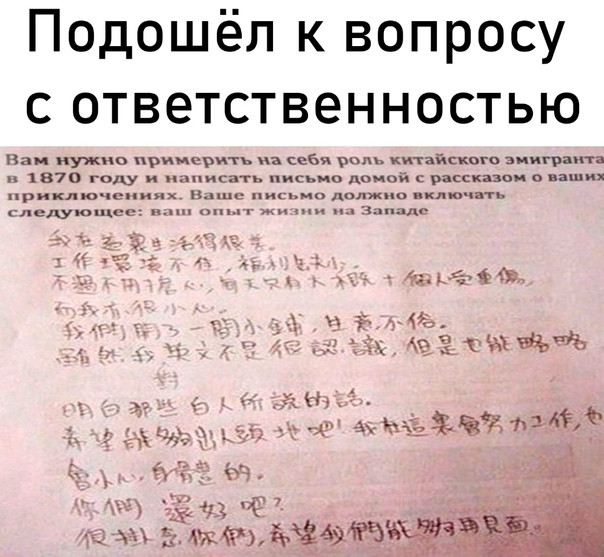 Подошёл к вопросу
с ответственностью
Вам нужно примерить на себя роль китайского эмигранта
в 1870 году и написать письмо домой с рассказом о ваших
приключениях. Ваше письмо должно включать
следующее: ваш опыт жизни на Западе
我在這裏生活得很差。
工作環境不佳，福利缺少。
不過不用擔心，每天只有大概十個人受重傷，
而我亦很小心。
我們開了一間小鋪，生意不俗。
雖然我對英文不是很認識，但是也能略略
明白那些白人所說的話。
希望能夠出人頭地吧！我在這裏會努力工作，也
會小心身體的。
你們還好吧？
很掛念你們，希望我們能夠再見面。